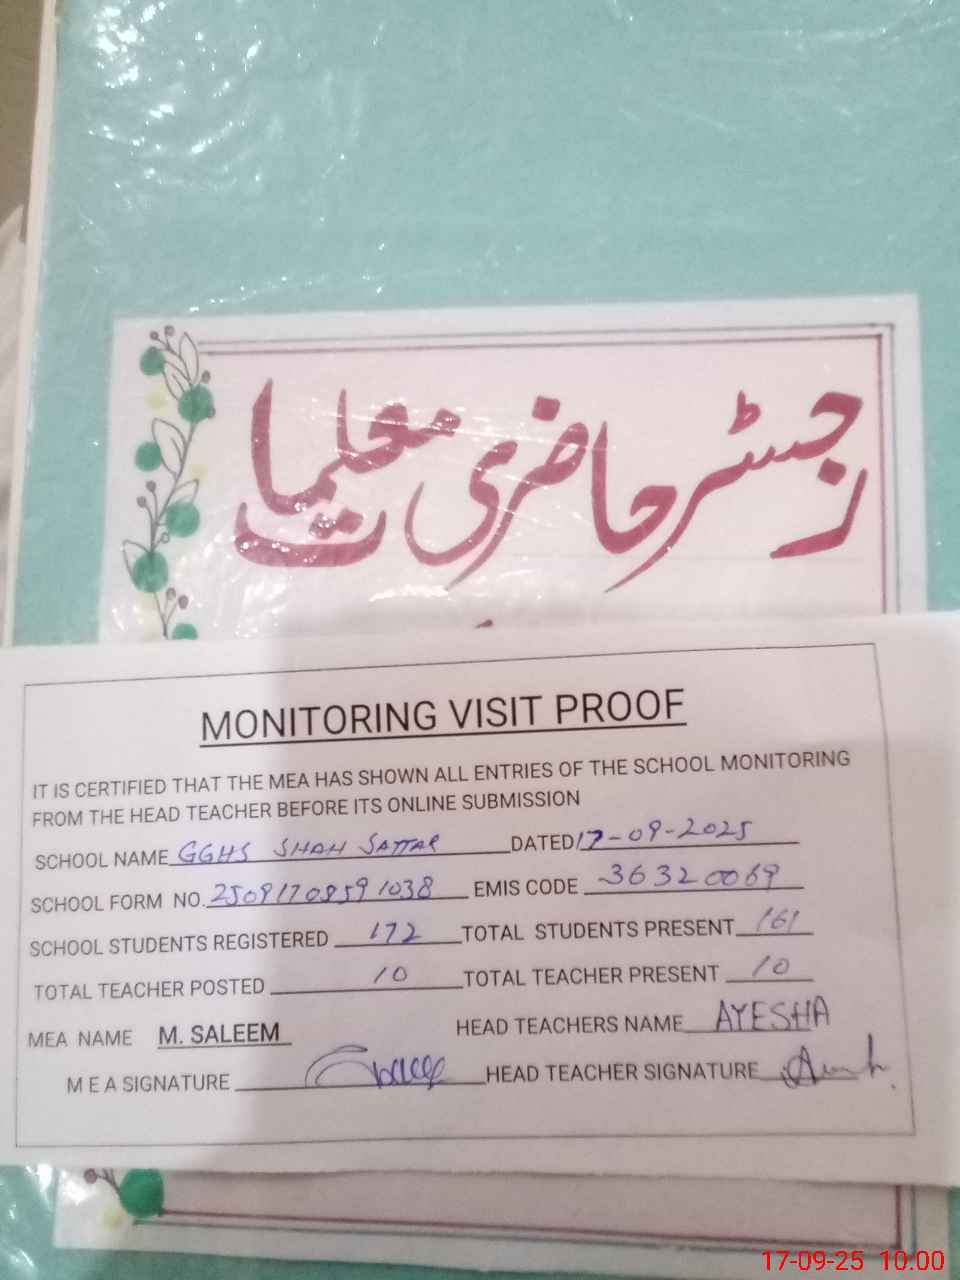 رجسٹر حاضری معلمات
MONITORING VISIT PROOF
IT IS CERTIFIED THAT THE MEA HAS SHOWN ALL ENTRIES OF THE SCHOOL MONITORING
FROM THE HEAD TEACHER BEFORE ITS ONLINE SUBMISSION
SCHOOL NAME GGHS SHAH SATTAR DATED 17-09-2025
SCHOOL FORM NO. 2509170859 1038 EMIS CODE 36320069
SCHOOL STUDENTS REGISTERED 172 TOTAL STUDENTS PRESENT 161
TOTAL TEACHER POSTED 10 TOTAL TEACHER PRESENT 10
MEA NAME M. SALEEM HEAD TEACHERS NAME AYESHA
M E A SIGNATURE HEAD TEACHER SIGNATURE
17-09-25 10.00